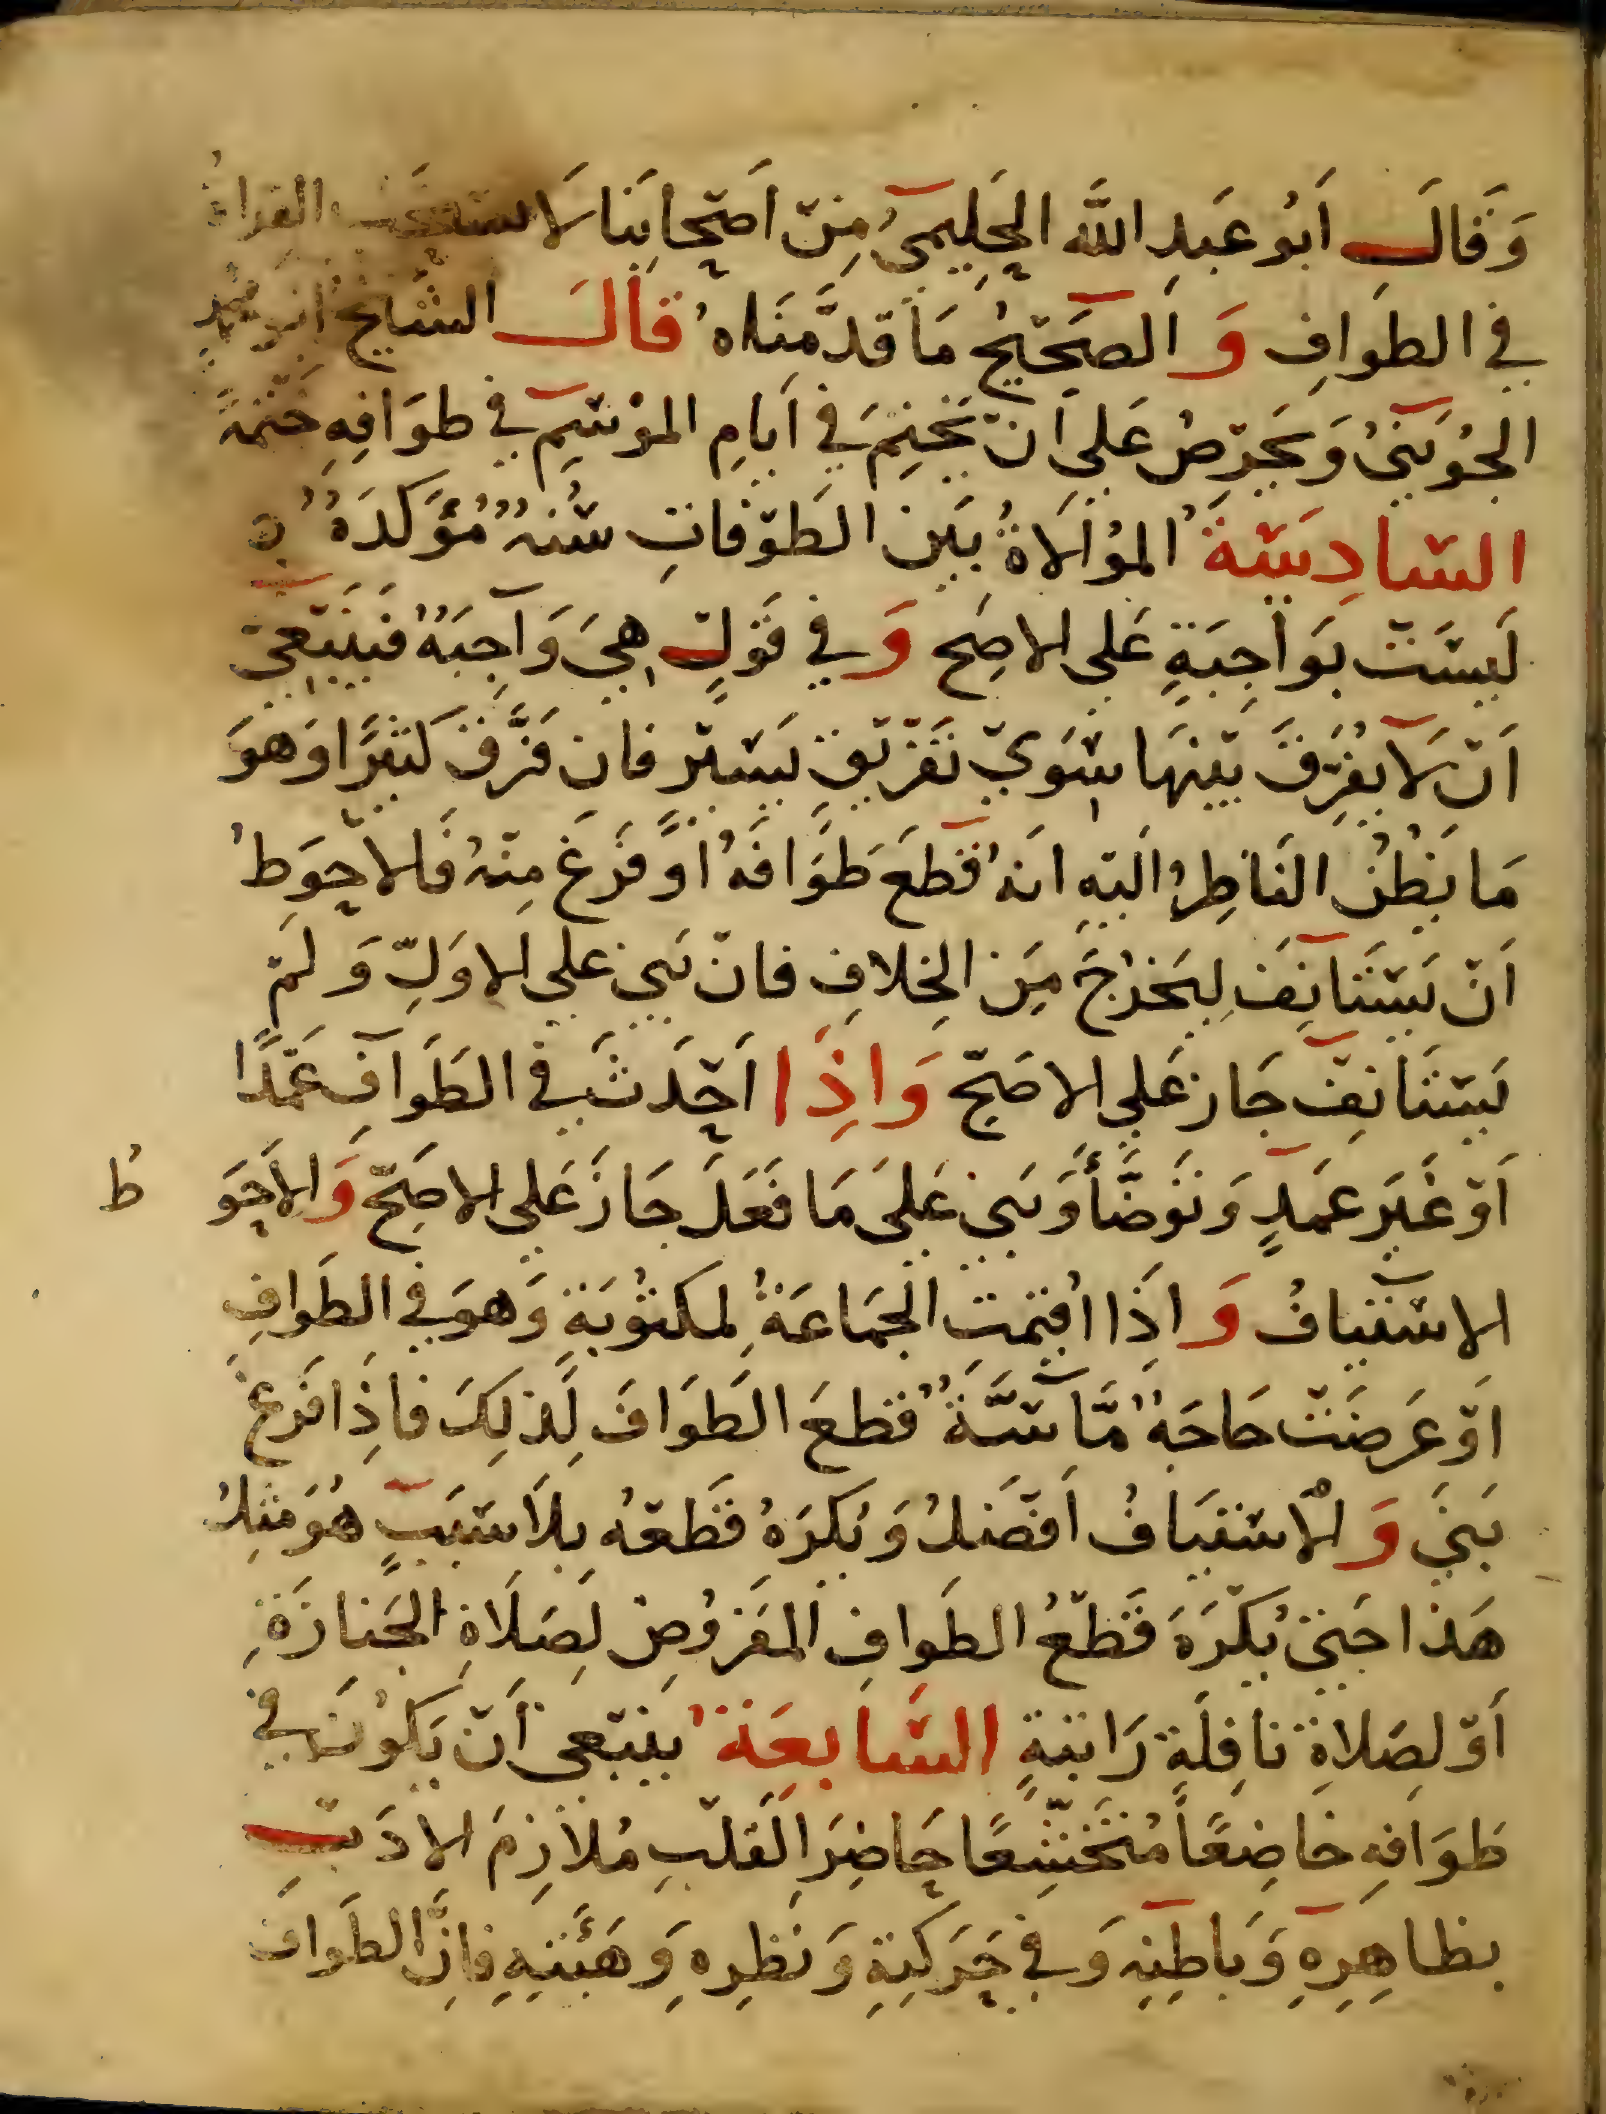 وَقَالَ أَبُو عَبدِ اللَّه الحَلِيمىُ مِنْ أَصْحَابِنَا لَا تستحَب القراةُ
في الطوَافِ وَالصَحيْحُ مَا قدَّمنَاهُ قالَ الشيخ ابو محمد
الجُوَينىُ وَيَحرْصُ عَلى أنْ يَختِمَ فى ايامِ المَوْسِم في طوَافِهِ ختْمَةً
السَادِسَة المُوَالَاةُ بَين الطَوْفَاتِ سُنة مُؤَكدَةٌ
لَيسَتْ بوَاجِبَةٍ عَلى الاصَح وَفي قَوْلٍ هِيَ وَاجِبَةٌ فَيَنبَغى
أنْ لَا يُفَرِّقَ بيْنهَا سِوَي تَفْرِيْقٍ يَسيْر فان فَرَّقَ كَثيرًا وَهوَ
مَا يَظُنُ النَاظِرُ اليْهِ انهُ قَطعَ طَوَافَهُ أوْ فَرَغ مِنْهُ فَالاحْوَطُ
أنْ يَسْتَأنِفَ لِيَخرُجَ مِنَ الخِلافِ فانْ بَنى عَلى الاوَلِ وَلمْ
يَسْتَانِفْ جَازَ عَلى الاصَحّ وَاذَا أحْدَثَ فى الطَوَاف عَمْدًا
أوْ غَيَر عمَدٍ وَتَوَضَّأ وَبَنى عَلىَ مَا فَعَلَ جَازَ عَلى الاصَحّ وَالاَحوَ ط
الاسْتينافُ وَاذَا اقيمَت الجَمَاعَةُ لِمكتوُبَةٍ وَهوَ فى الطوَافِ
اوْ عَرضَتْ حَاجَةٌ مَّاسَّةٌ قطعَ الطَوَافَ لِذلِكَ فاذِا فَرَغَ
بَنَى وَالْاستينَافُ أفْضَلُ وَيُكرَهُ قَطعْهُ بِلَا سَبَبٍ هُوَ مثِلُ
هَذا حَتىّ يُكْرَهَ قَطْعُ الطوَافِ المفَروُضْ لِصَلَاةِ الجَنازَةِ
أوْ لصَلاةِ نافِلَةٍ رَاتبةٍ السَابعَة ينبَغى أنْ يَكوُنَ في
طوَافهِ خَاضِعًا مُتَخَشِّعًا حَاضِرَ القَلْبِ مُلَازِمَ الادَبِ
بظاهِرِهِ وَباطِنِهِ وَفي حَرَكتِهِ وَنظرِهِ وَهَيْئتِهِ فاِنَّ الطوَافَ